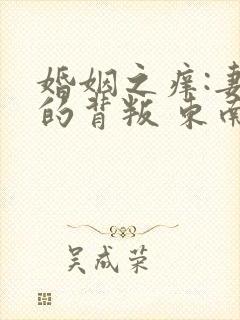 婚姻之痒:妻
的背叛 东南
吴成荣